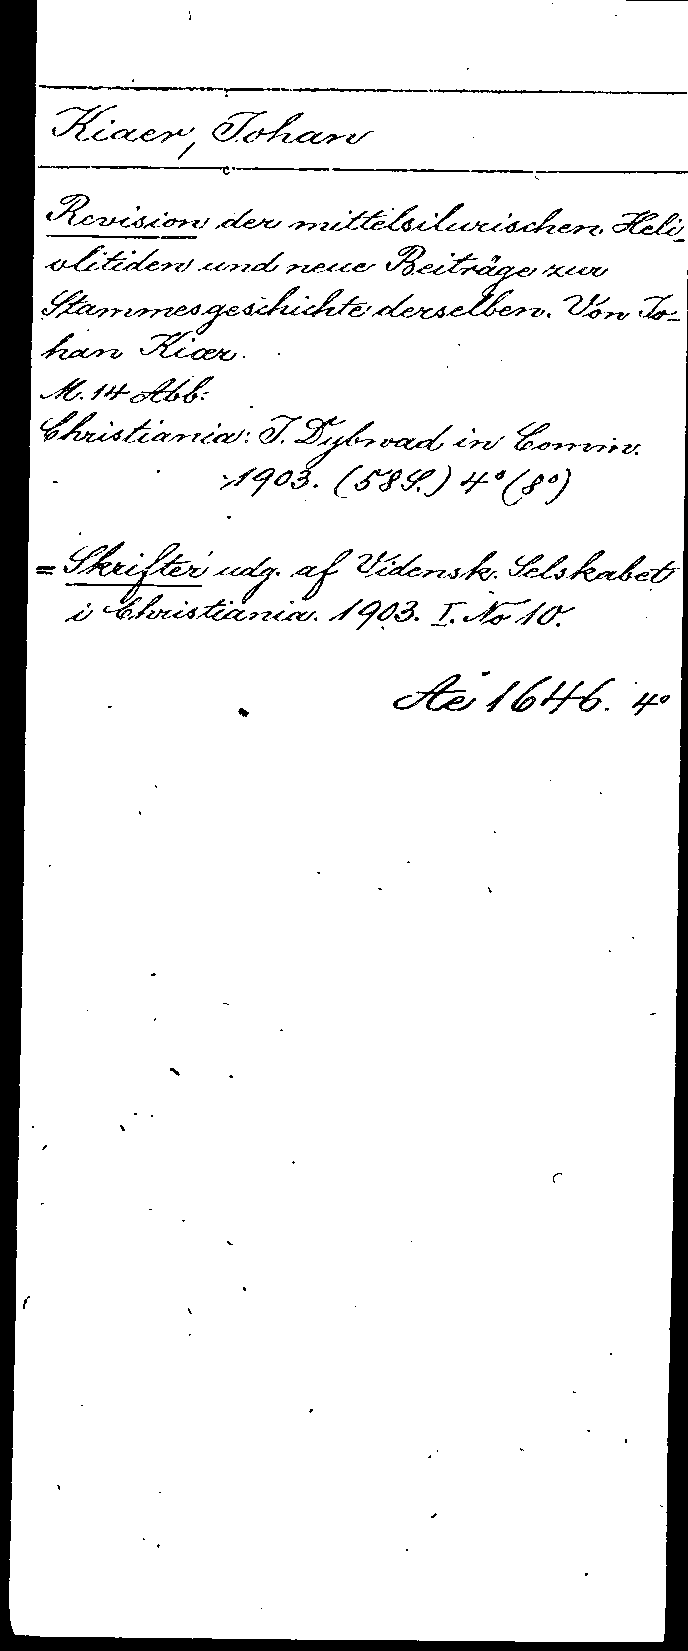 Kiaer, Johan
Revision der mittelsilurischen Heli-
olitiden und neue Beiträge zur
Stammesgeschichte derselben. Von Jo-
han Kiær.
M. 14 Abb.
Christiania: J. Dybwad in Comm.
1903. (58 S.) 4° (8°)
= Skrifter udg. af Vidensk. Selskabet
i Christiania. 1903. I. No 10.
Ae 1646. 4°